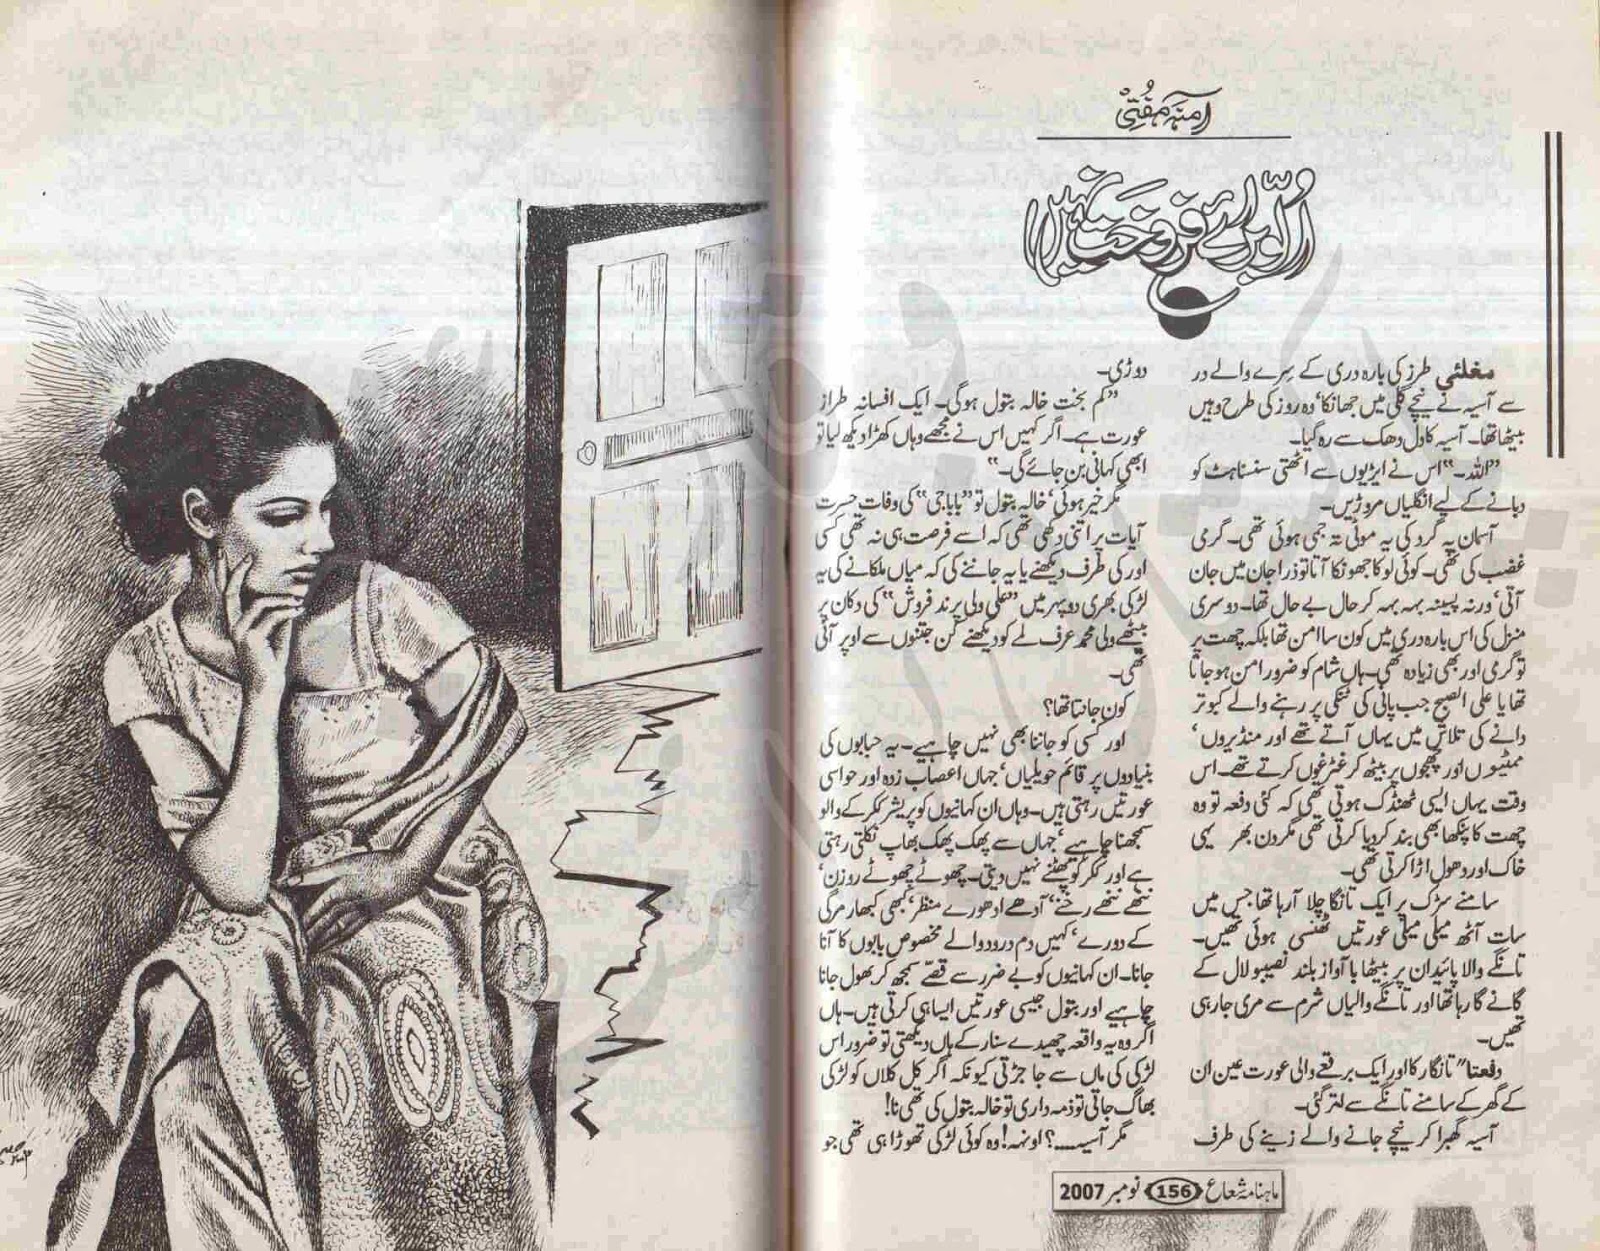 آمنہ مفتی
اُلّو برائے فروخت نہیں
مغلئی طرز کی بارہ دری کے سرے والے در
سے آسیہ نے نیچے گلی میں جھانکا‘ وہ روز کی طرح وہیں
بیٹھا تھا۔ آسیہ کا دل دھک سے رہ گیا۔
”اللہ۔“ اس نے ایڑیوں سے اٹھتی سنسناہٹ کو
دبانے کے لیے انگلیاں مروڑیں۔
آسمان پہ گرد کی یہ موٹی تہ جمی ہوئی تھی۔ گرمی
غضب کی تھی۔ کوئی لو کا جھونکا آتا تو ذرا جان میں جان
آتی‘ ورنہ پسینہ بہہ بہہ کر حال بے حال تھا۔ دوسری
منزل کی اس بارہ دری میں کون سا امن تھا بلکہ چھت پر
تو گرمی اور بھی زیادہ تھی۔ ہاں شام کو ضرور امن ہو جاتا
تھا یا علی الصبح جب پانی کی ٹنکی پر رہنے والے کبوتر
دانے کی تلاش میں یہاں آتے تھے اور منڈیروں‘
ممٹیوں اور چھجوں پر بیٹھ کر غٹرغوں کرتے تھے۔ اس
وقت یہاں ایسی ٹھنڈک ہوتی تھی کہ کئی دفعہ تو وہ
چھت کا پنکھا بھی بند کر دیا کرتی تھی مگر دن بھر یہی
خاک اور دھول اڑا کرتی تھی۔
سامنے سڑک پر ایک تانگا چلا آ رہا تھا جس میں
سات آٹھ میلی میلی عورتیں ٹھنسی ہوئی تھیں۔
تانگے والا پائیدان پر بیٹھا با آواز بلند نصیبو لال کے
گانے گا رہا تھا اور تانگے والیاں شرم سے مری جا رہی
تھیں۔
دفعتا“ تانگا رکا اور ایک برقعے والی عورت عین ان
کے گھر کے سامنے تانگے سے اتر گئی۔
آسیہ گھبرا کر نیچے جانے والے زینے کی طرف
دوڑی۔
”کم بخت خالہ بتول ہوگی۔ ایک افسانہ طراز
عورت ہے۔ اگر کہیں اس نے مجھے وہاں کھڑا دیکھ لیا تو
ابھی کہانی بن جائے گی۔“
مگر خیر ہوئی‘ خالہ بتول تو ”بابا جی“ کی وفات حسرت
آیات پر اتنی دکھی تھی کہ اسے فرصت ہی نہ تھی کسی
اور کی طرف دیکھنے یا یہ جاننے کی کہ میاں ملکانے کی یہ
لڑکی بھری دوپہر میں ”علی ولی پرند فروش“ کی دکان پر
بیٹھے ولی محمد عرف لمے کو دیکھنے کن جتنوں سے اوپر آئی
تھی۔
کون جانتا تھا؟
اور کسی کو جاننا بھی نہیں چاہیے۔ یہ حبابوں کی
بنیادوں پر قائم حویلیاں‘ جہاں اعصاب زدہ اور حواسی
عورتیں رہتی ہیں۔ وہاں ان کہانیوں کو پریشر ککر کے والو
سمجھنا چاہیے‘ جہاں سے پھک پھک بھاپ نکلتی رہتی
ہے اور ککر کو پھٹنے نہیں دیتی۔ چھوٹے چھوٹے روزن‘
ننھے ننھے رخنے‘ آدھے ادھورے منظر‘ کبھی کبھار مرگی
کے دورے‘ کہیں دم درود والے مخصوص بابوں کا آنا
جانا۔ ان کہانیوں کو بے ضرر سے قصے سمجھ کر بھول جانا
چاہیے اور بتول جیسی عورتیں ایسا ہی کرتی ہیں۔ ہاں
اگر وہ یہ واقعہ چھیدے سنار کے ہاں دیکھتی تو ضرور اس
لڑکی کی ماں سے جا جڑتی کیونکہ اگر کل کلاں کو لڑکی
بھاگ جاتی تو ذمہ داری تو خالہ بتول کی تھی نا!
مگر آسیہ.....؟ اونہہ! وہ کوئی لڑکی تھوڑا ہی تھی جو
ماہنامہ شعاع 156 نومبر 2007